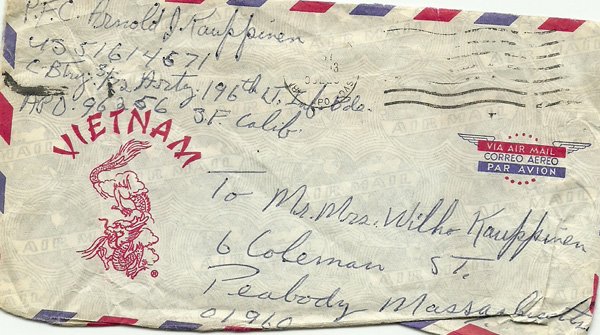 P.F.C. Arnold J. Kauppinen
US 51614671
C Btry. 3/82 Arty, 196th Lt. Inf. Bde.
APO. 96256 S.F. Calif.
VIETNAM
®
VIA AIR MAIL
CORREO AEREO
PAR AVION
To Mr. Mrs. Wilho Kauppinen
6 Coleman ST.
Peabody Massachusetts
01960